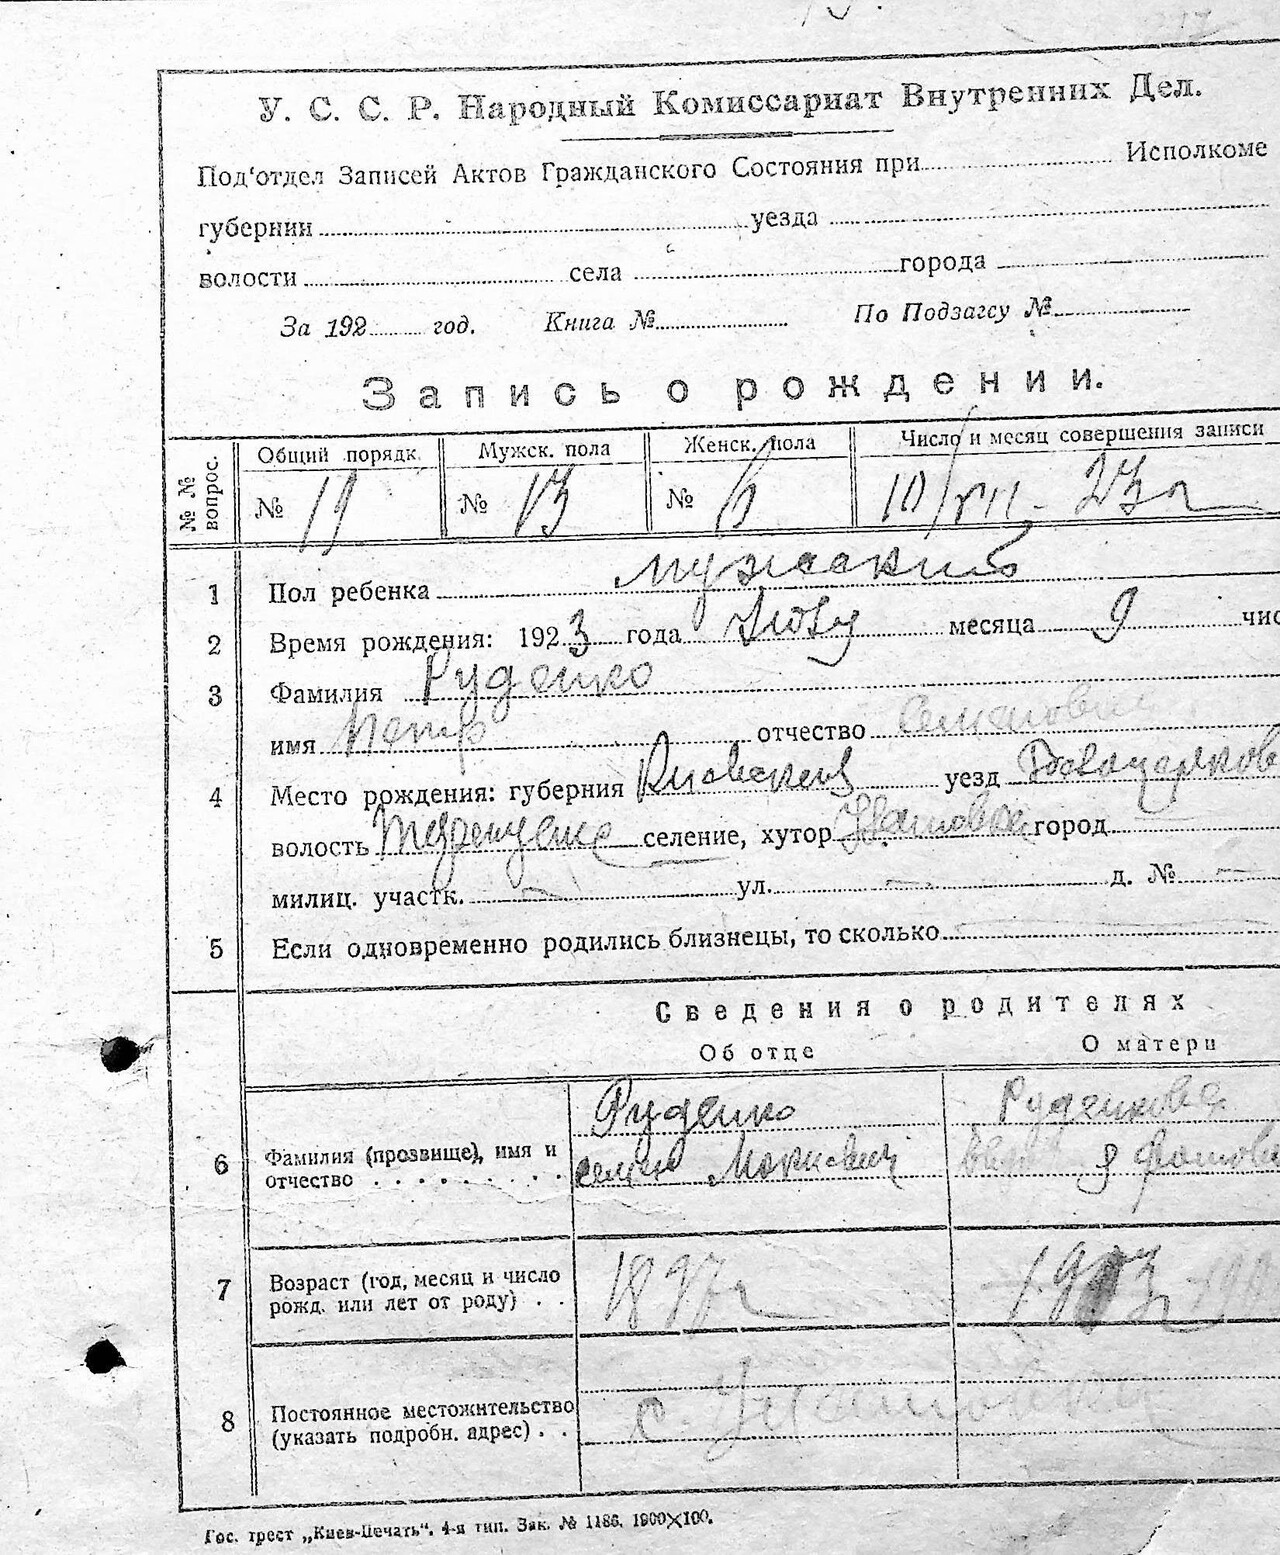 У. С. С. Р. Народный Комиссариат Внутренних Дел.
Под'отдел Записей Актов Гражданского Состояния при Исполкоме
губернии уезда
волости села города
За 192 год. Книга № По Подзагсу №
Запись о рождении.
№ № вопрос.
Общий порядк. Мужск. пола Женск. пола Число и месяц совершения записи
№ 19 № 13 № 6 10/VII - 23 г
1 Пол ребенка мужский
2 Время рождения: 1923 года Июля месяца 9 чис
3 Фамилия Руденко
имя Петр отчество Семенович
4 Место рождения: губерния Киевская уезд Белоцерков
волость селение, хутор город
милиц. участк. — ул. — д. № —
5 Если одновременно родились близнецы, то сколько
Сведения о родителях
Об отце О матери
Руденко Руденкова
6 Фамилия (прозвище), имя и
отчество
Семен Маркович
7 Возраст (год, месяц и число
рожд. или лет от роду)
1897 г 1903 г
8 Постоянное местожительство
(указать подробн. адрес)
с.
Гос. трест „Киев-Печать“. 4-я тип. Зак. № 1186. 1900×100.